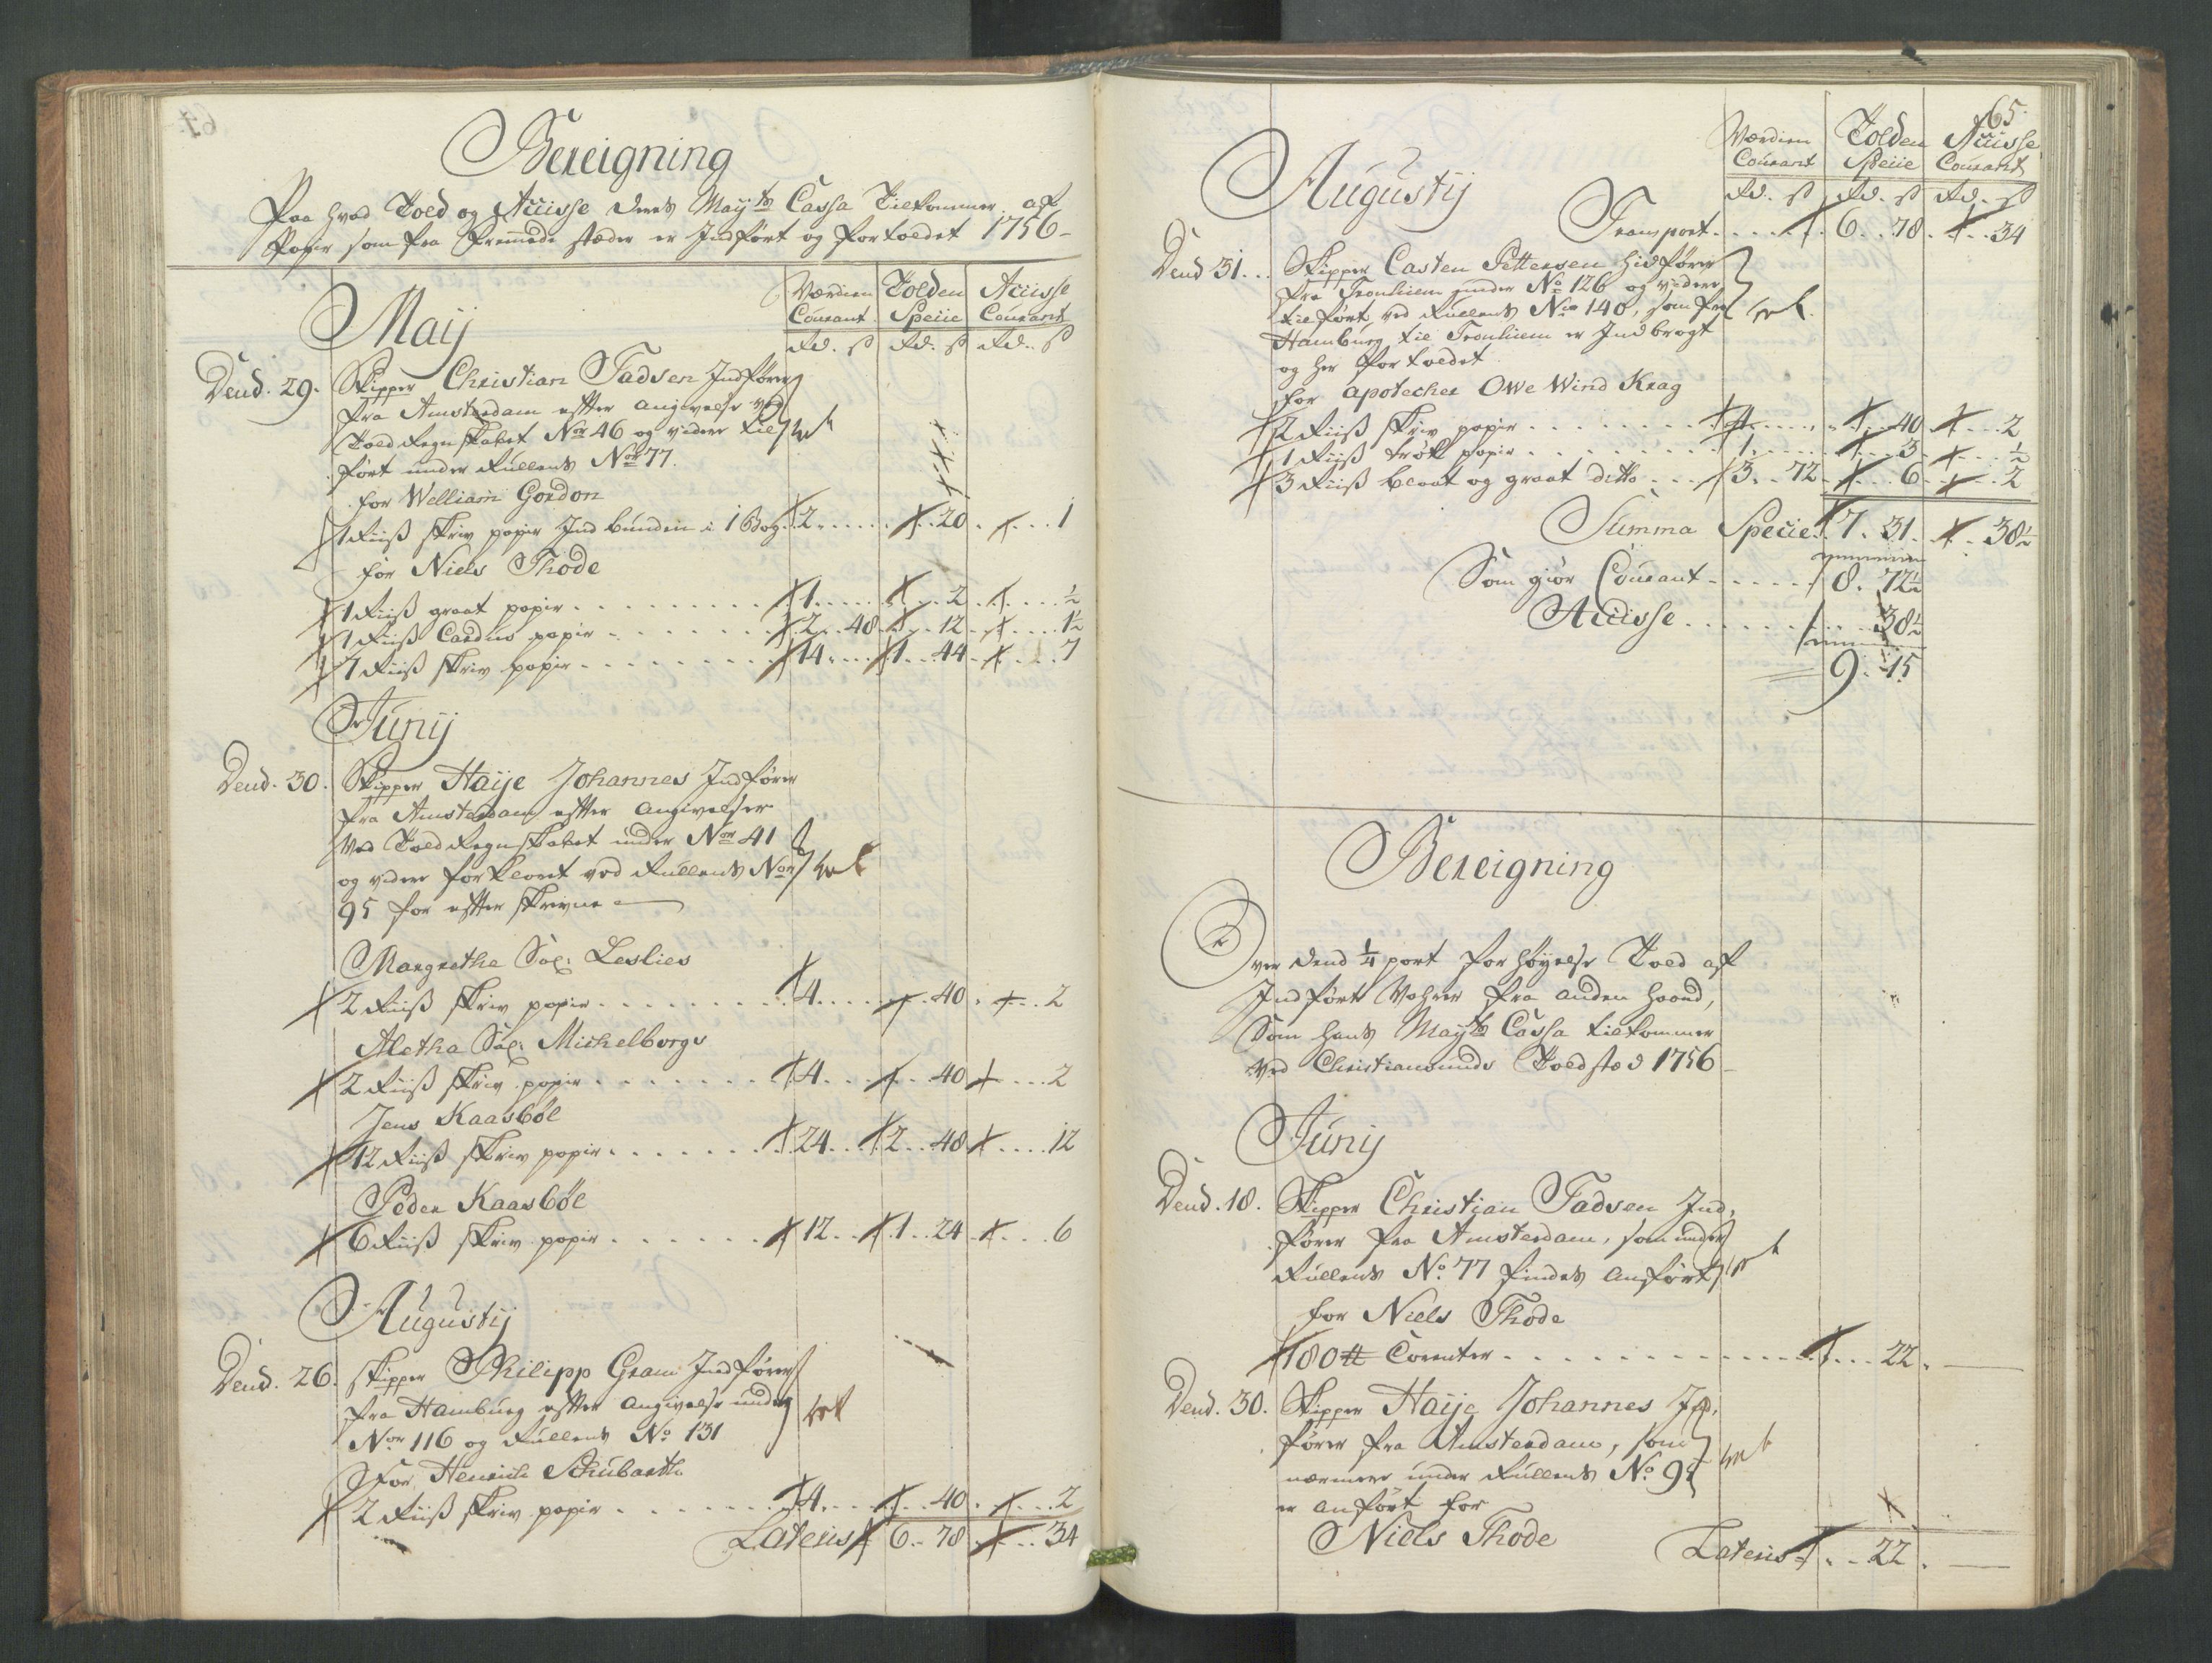 Bereigning
Paa hvad Told og Accisse Deres Mayts Cassa Tilkommer, af
Papir som fra Fremede stæder er Indført og fortoldet 1756-
Værdien Tolden Accisse
Courant Specie Courant
Rd. ß Rd. ß Rd. ß
Maij
Dend. 29. Skipper Christian Tadsen Indfører
fra Amsterdam efter angivelse ved
Told Regnskabet Nor 46 og videre til
ført under Rullens Nor 77.
for Welliam Gordon
1 Riiß skriv papir Indbunden i 1 Bog 2 20 1
for Niels Thode
1 Riiß graat papir 1 2 ½
1 Riiß Cardus papir 2 48 12 1½
7 Riiß skriv papir 14 1 44 7
Junij
Dend. 30. Skipper Haije Johannes Indfører
fra Amsterdam efter angivelser
Ved Told Regnskabet under Nor 41
og videre forklaret ved Rullens Nor
95 for efter skrevne
Margrethe Sal: Leslies
2 Riiß skriv papir 4 40 2
Aletha Sal: Michelborgs
2 Riiß skriv papir 4 40 2
Jens Kaasbøl
12 Riiß skriv papir 24 2 48 12
Peder Kaasbøl
6 Riiß skriv papir 12 1 24 6
Augustij
Dend. 26. skipper Philipp Gram Indfører
fra Hamburg efter angivelse under
Nor 116 og Rullens No 131
For Henrich Schubarth
2 Riiß skriv papir 4 40 2
Lateris 6 78 34
65.
Værdien Tolden Accisse
Courant Specie Courant
Rd. ß Rd. ß Rd. ß
Augustij
Transport 6 78 34
Dend 31. Skipper Casten Pettersen hidfører
fra Tronhiem under No 126 og videre
tilført ved Rullens Nor 140, som fra
Hamburg til Tronhiem er Indbragt
og her fortoldet
for apotecher Owe Wind Krag
2 Riiß skriv papir 4 40 2
1 Riiß trøk papir 1 3 ½
3 Riiß blaat og graat ditto 3 72 6 2
Summa Specie 7 31 38½
Som giør Courant 8. 72½
Accisse 38½
9. 15
Bereigning
Over dend ¼ part forhøyelse Told af
Indførte Vahrer fra anden haand,
Som hans Mayts Cassa tilkommer
Ved Christiansunds Toldsted 1756
Junij
Dend. 18. Skipper Christian Tadsen Ind,
fører fra Amsterdam, som under
Rullens No. 77 findes anført
for Niels Thode
180 ℔ Corenter 22
Dend. 30. Skipper Haije Johannes Ind,
fører fra Amsterdam, som
nærmere under Rullens No. 95
er anført for
Niels Thode
Lateris 22